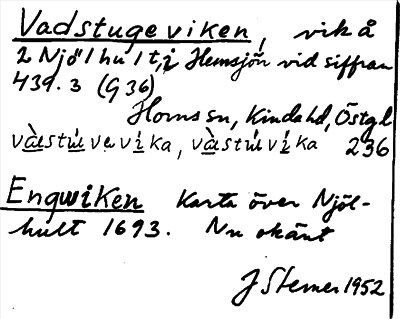 Vadstugeviken, vik å
2 Njö'lhult, i Hemsjön vid siffran
439.3 (G 36)
Horns sn, Kinda hd, Östgl
vàstúvevíka, vàstúvíka 236
Engwiken Karta över Njöl-
hult 1693. Nu okänt
J Stemer 1952